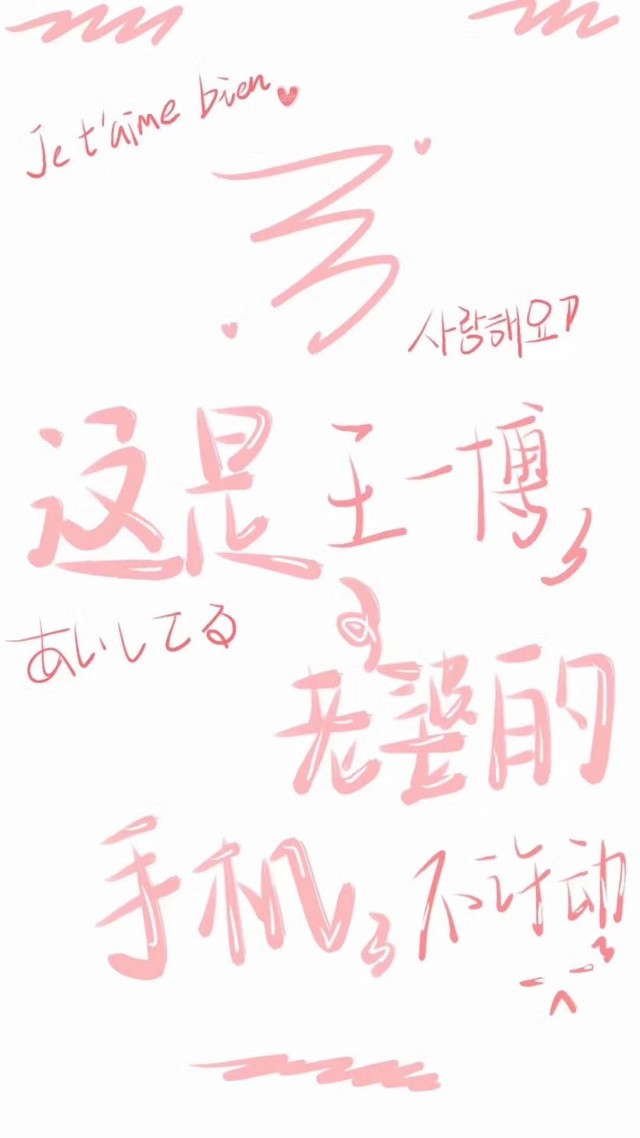 Je t'aime bien
사랑해요
这是王一博
あいしてる
老婆的
手机 不许动